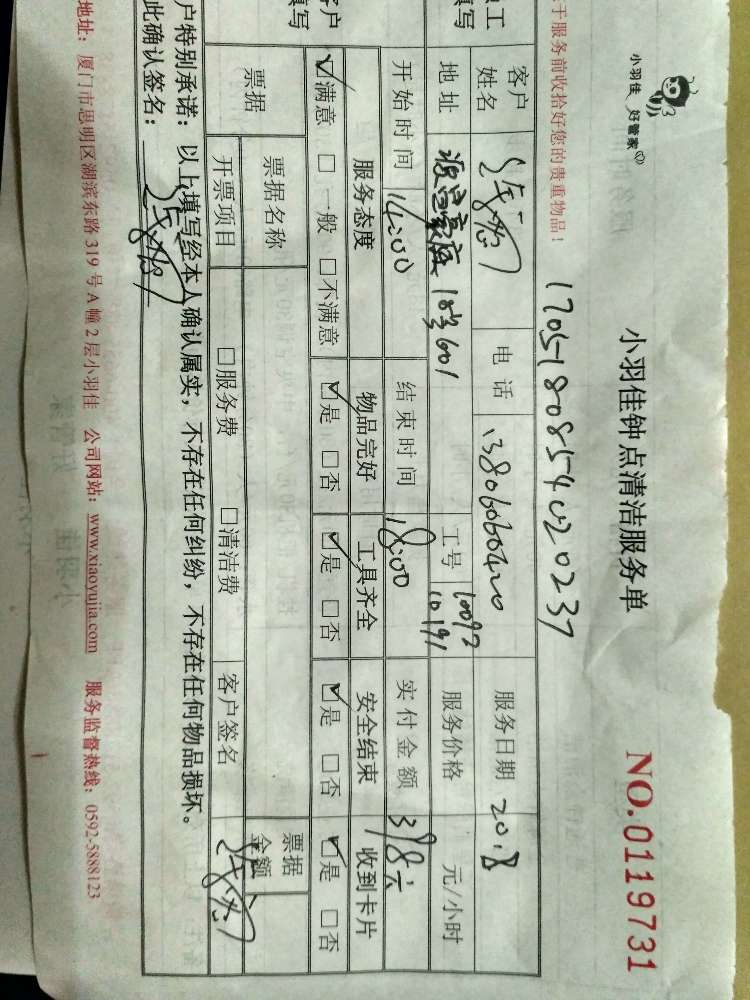 小羽佳 好管家
小羽佳钟点清洁服务单
NO.0119731
于服务前收拾好您的贵重物品!
1705180854020237
职工
填写
客户
姓名
电话
13806060420
服务日期
20.8
地址
源昌豪庭 18号601
工号
10092
10191
服务价格
元/小时
开始时间
14:00
结束时间
18:00
实付金额
318元
客户
填写
服务态度
物品完好
工具齐全
安全结束
收到卡片
☑满意 □一般 □不满意
☑是 □否
☑是 □否
☑是 □否
☑是 □否
票据
票据名称
票据
金额
开票项目
□服务费
□清洁费
客户签名
户特别承诺:以上填写经本人确认属实,不存在任何纠纷,不存在任何物品损坏。
此确认签名:
地址:厦门市思明区湖滨东路 319 号 A 幢 2 层小羽佳 公司网站:www.xiaoyujia.com 服务监督热线:0592-5888123